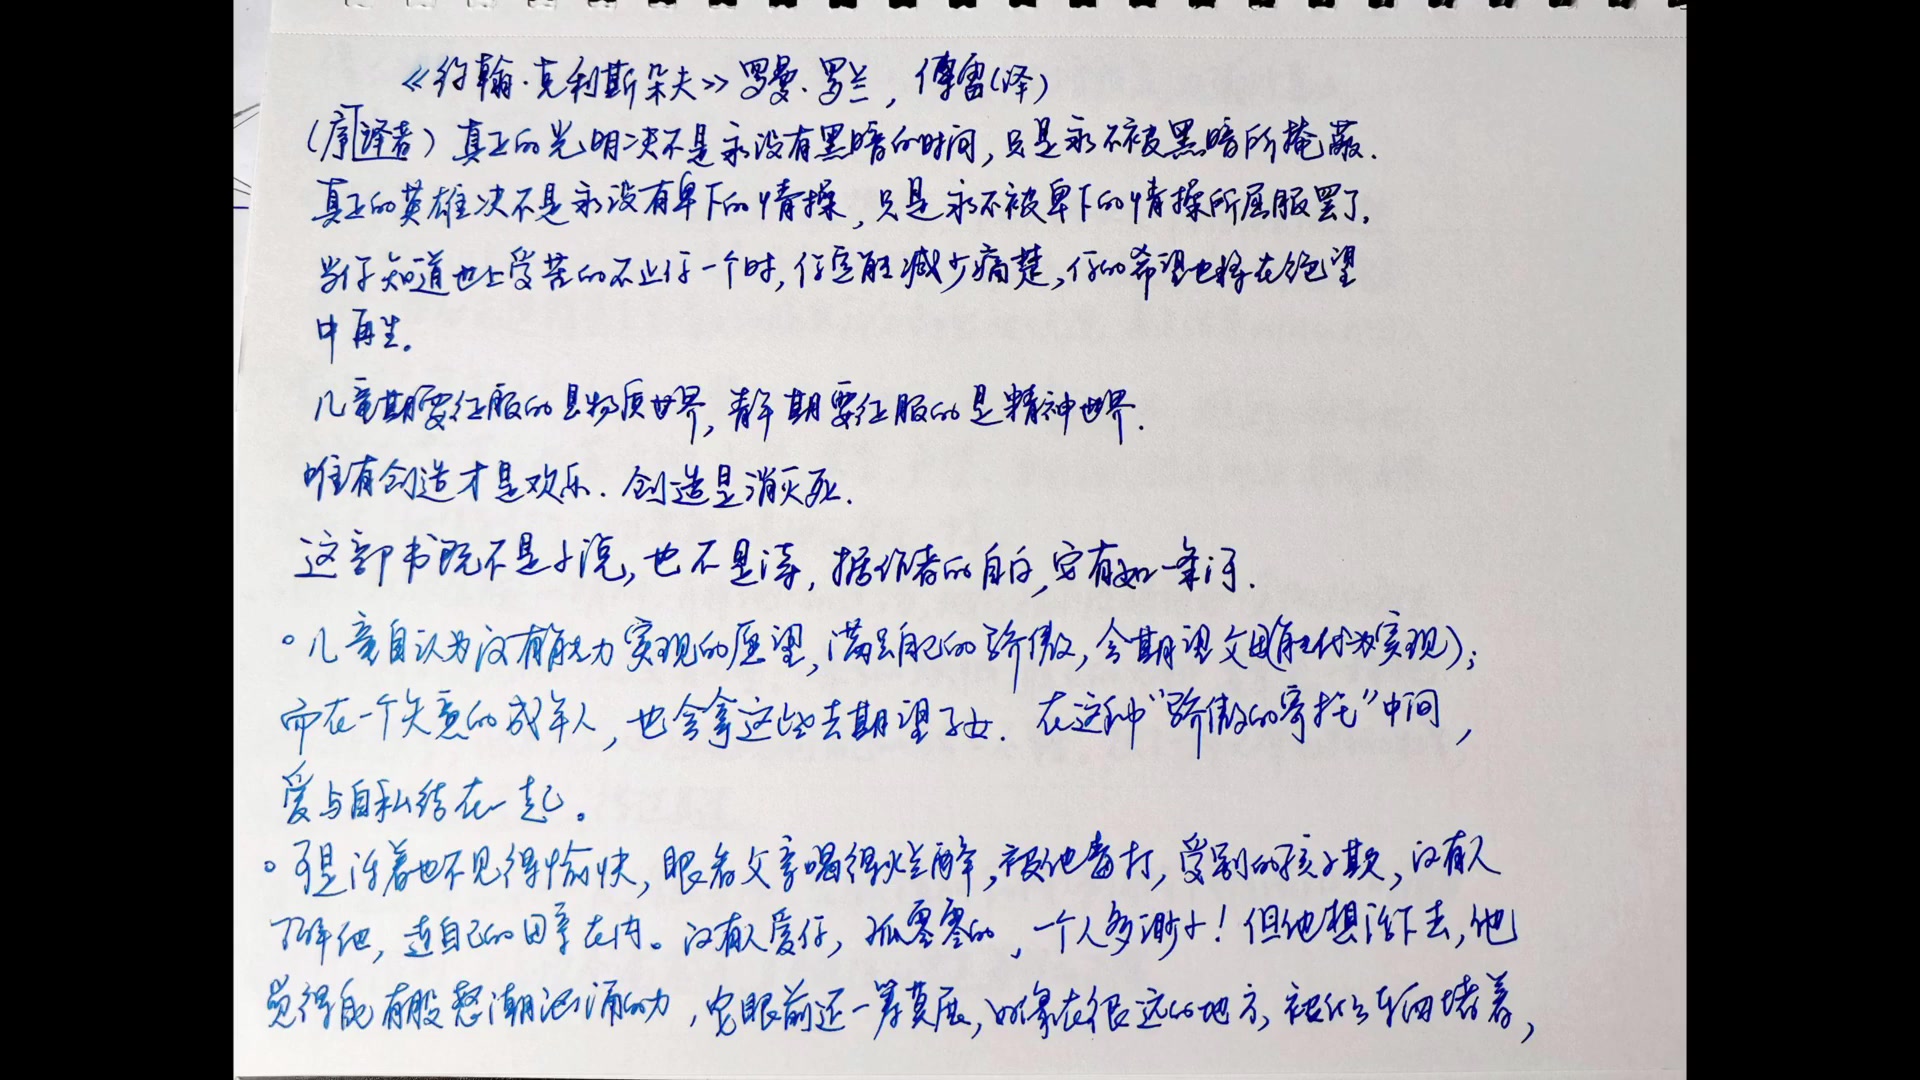 《约翰·克利斯朵夫》罗曼·罗兰，傅雷(译)
(序 译者) 真正的光明决不是永没有黑暗的时间，只是永不被黑暗所掩蔽.
真正的英雄决不是永没有卑下的情操，只是永不被卑下的情操所屈服罢了.
当你知道世上受苦的不止你一个时，你定能减少痛楚，你的希望也将在绝望
中再生。
儿童期要征服的是物质世界，青年期要征服的是精神世界.
唯有创造才是欢乐. 创造是消灭死.
这部书既不是小说，也不是诗，据作者的自白，它有如一条河.
。儿童自认为没有能力实现的愿望，满足自己的骄傲，会期望父母(能代为实现)；
而在一个失意的成年人，也会拿这些去期望子女. 在这种“骄傲的寄托”中间，
爱与自私结在一起。
。可是活着也不见得愉快，眼看父亲喝得烂醉，被他毒打，受别的孩子欺，没有人
了解他，连自己的母亲在内。没有人爱你，孤零零的，一个人多渺小！但他想活下去，他
觉得自己有股怒潮汹涌的力，它眼前还一筹莫展，好像在很远的地方，被什么东西堵着，